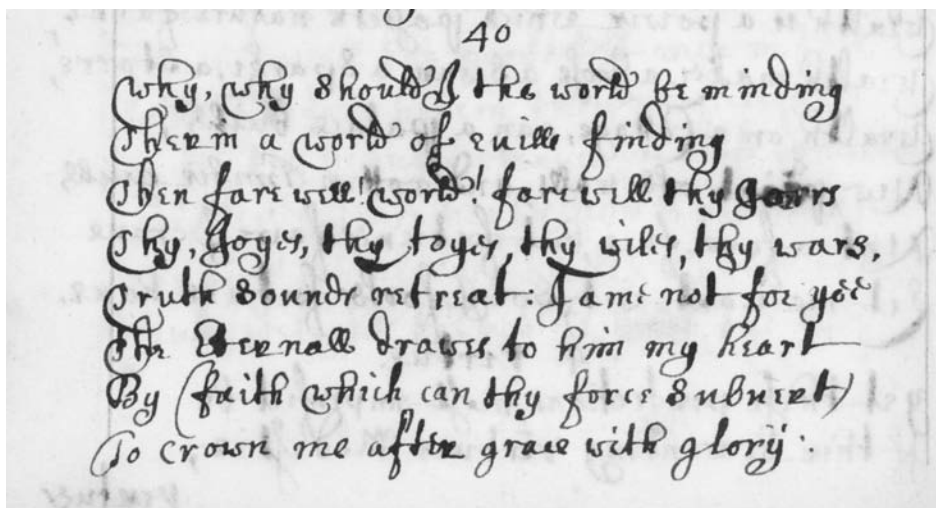 40
Why, why should I the world be minding
Therin a world of euills finding
Then farewell! world! farewell thy Jarrs
Thy, Joyes, thy, toyes, thy wiles, thy wars,
Truth Sounds retreat: I ame not for yee
The Eternall drawes to him my heart
By (faith which can thy force subuert)
To crown me after grace with glory: